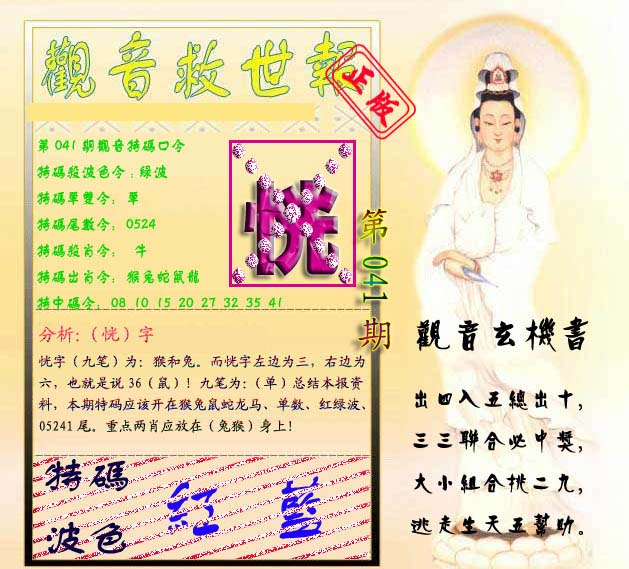 觀音救世報
正版
第 041 期觀音特碼口令
特碼殺波色令：綠波
特碼單雙令： 單
特碼尾數令： 0524
特碼殺肖令： 牛
特碼出肖令： 猴兔蛇鼠龍
特中碼令： 08 10 15 20 27 32 35 41
恍
第 041 期
分析：（恍）字
恍字（九笔）为：猴和兔。而恍字左边为三，右边为
六，也就是说 36（鼠）！九笔为：（单）总结本报资
料，本期特码应该开在猴兔鼠蛇龙马、单数、红绿波、
05241 尾。重点两肖应放在（兔猴）身上！
特碼
波色
紅 藍
觀音玄機書
出四入五總出十，
三三聯合必中獎，
大小組合桃二九，
逃走生天五幫助。